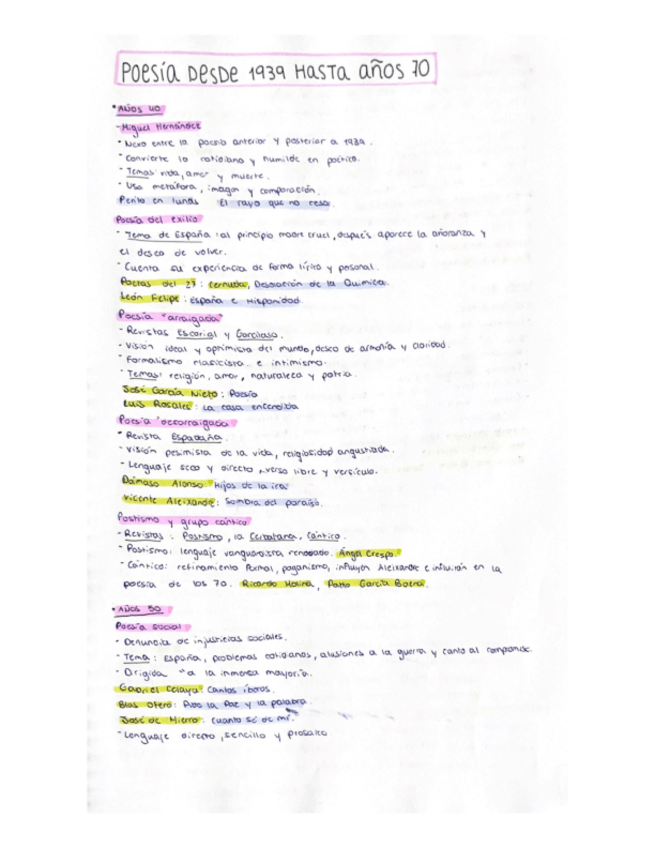 Poesía DESDE 1939 HASTA años 70
• AÑOS 40
- Miguel Hernández
- Nexo entre la poesía anterior y posterior a 1939.
- Convierte lo cotidiano y humilde en poético.
- Temas: vida, amor y muerte.
- Usa metáfora, imagen y comparación.
Perito en lunas El rayo que no cesa.
Poesía del exilio
- Tema de España: al principio madre cruel, después aparece la añoranza y
el deseo de volver.
- Cuenta su experiencia de forma lírica y personal.
Poetas del 27: Cernuda, Desolación de la Quimera.
León Felipe: España e Hispanidad.
Poesía "arraigada"
- Revistas Escorial y Garcilaso.
- Visión ideal y optimista del mundo, deseo de armonía y claridad.
- Formalismo clasicista e intimismo.
- Temas: religión, amor, naturaleza y patria.
José García Nieto: Poesía
Luis Rosales: La casa encendida
Poesía "desarraigada"
- Revista Espadaña.
- Visión pesimista de la vida, religiosidad angustiada.
- Lenguaje seco y directo, verso libre y versículo.
Dámaso Alonso Hijos de la ira.
Vicente Aleixandre: Sombra del paraíso.
Postismo y grupo cántico
- Revistas: Postismo, la Cerbatana, Cántico.
- Postismo: lenguaje vanguardista renovado. Ángel Crespo.
- Cántico: refinamiento formal, paganismo, influyen Aleixandre e influirán en la
poesía de los 70. Ricardo Molina, Pablo García Baena.
• AÑOS 50
Poesía social
- Denuncia de injusticias sociales.
- Tema: España, problemas cotidianos, alusiones a la guerra y canto al
- Dirigida "a la inmensa mayoría.
Gabriel Celaya: Cantos íberos.
Blas Otero: Pido la Paz y la palabra.
José de Hierro: Cuanto sé de mí.
- Lenguaje directo, sencillo y prosaico